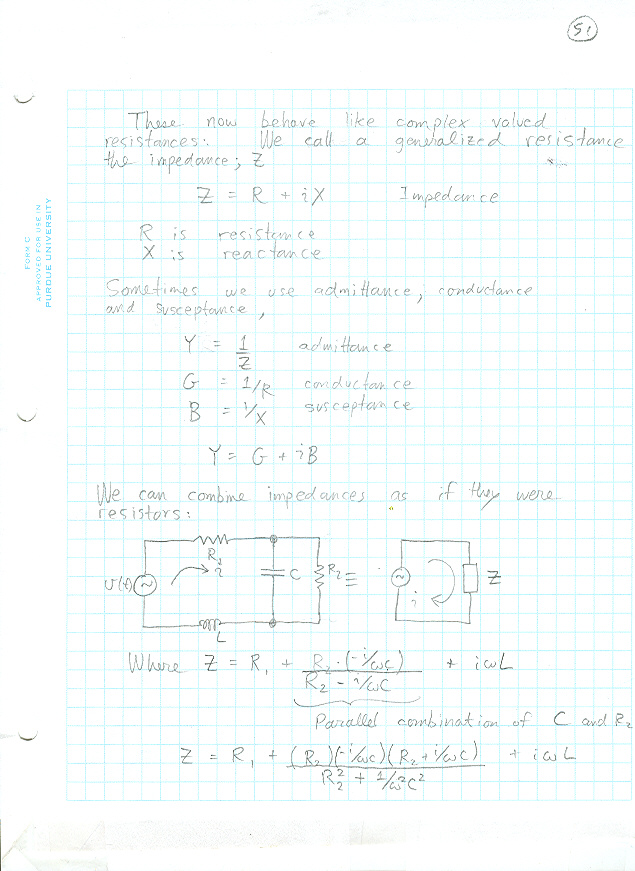 51
FORM C
APPROVED FOR USE IN
PURDUE UNIVERSITY
These now behave like complex valued
resistances: We call a generalized resistance
the impedance, Z
Z = R + iX Impedance
R is resistance
X is reactance
Sometimes we use admittance, conductance
and susceptance,
Y = 1/Z admittance
G = 1/R conductance
B = 1/X susceptance
Y = G + iB
We can combine impedances as if they were
resistors:
R1 i v(t) C R2 ≡ i Z
L
Where Z = R1 + R2·(-i/ωC) / (R2 - i/ωC) + iωL
Parallel combination of C and R2
Z = R1 + (R2)(-i/ωC)(R2 + i/ωC) / (R2² + 1/ω²C²) + iωL